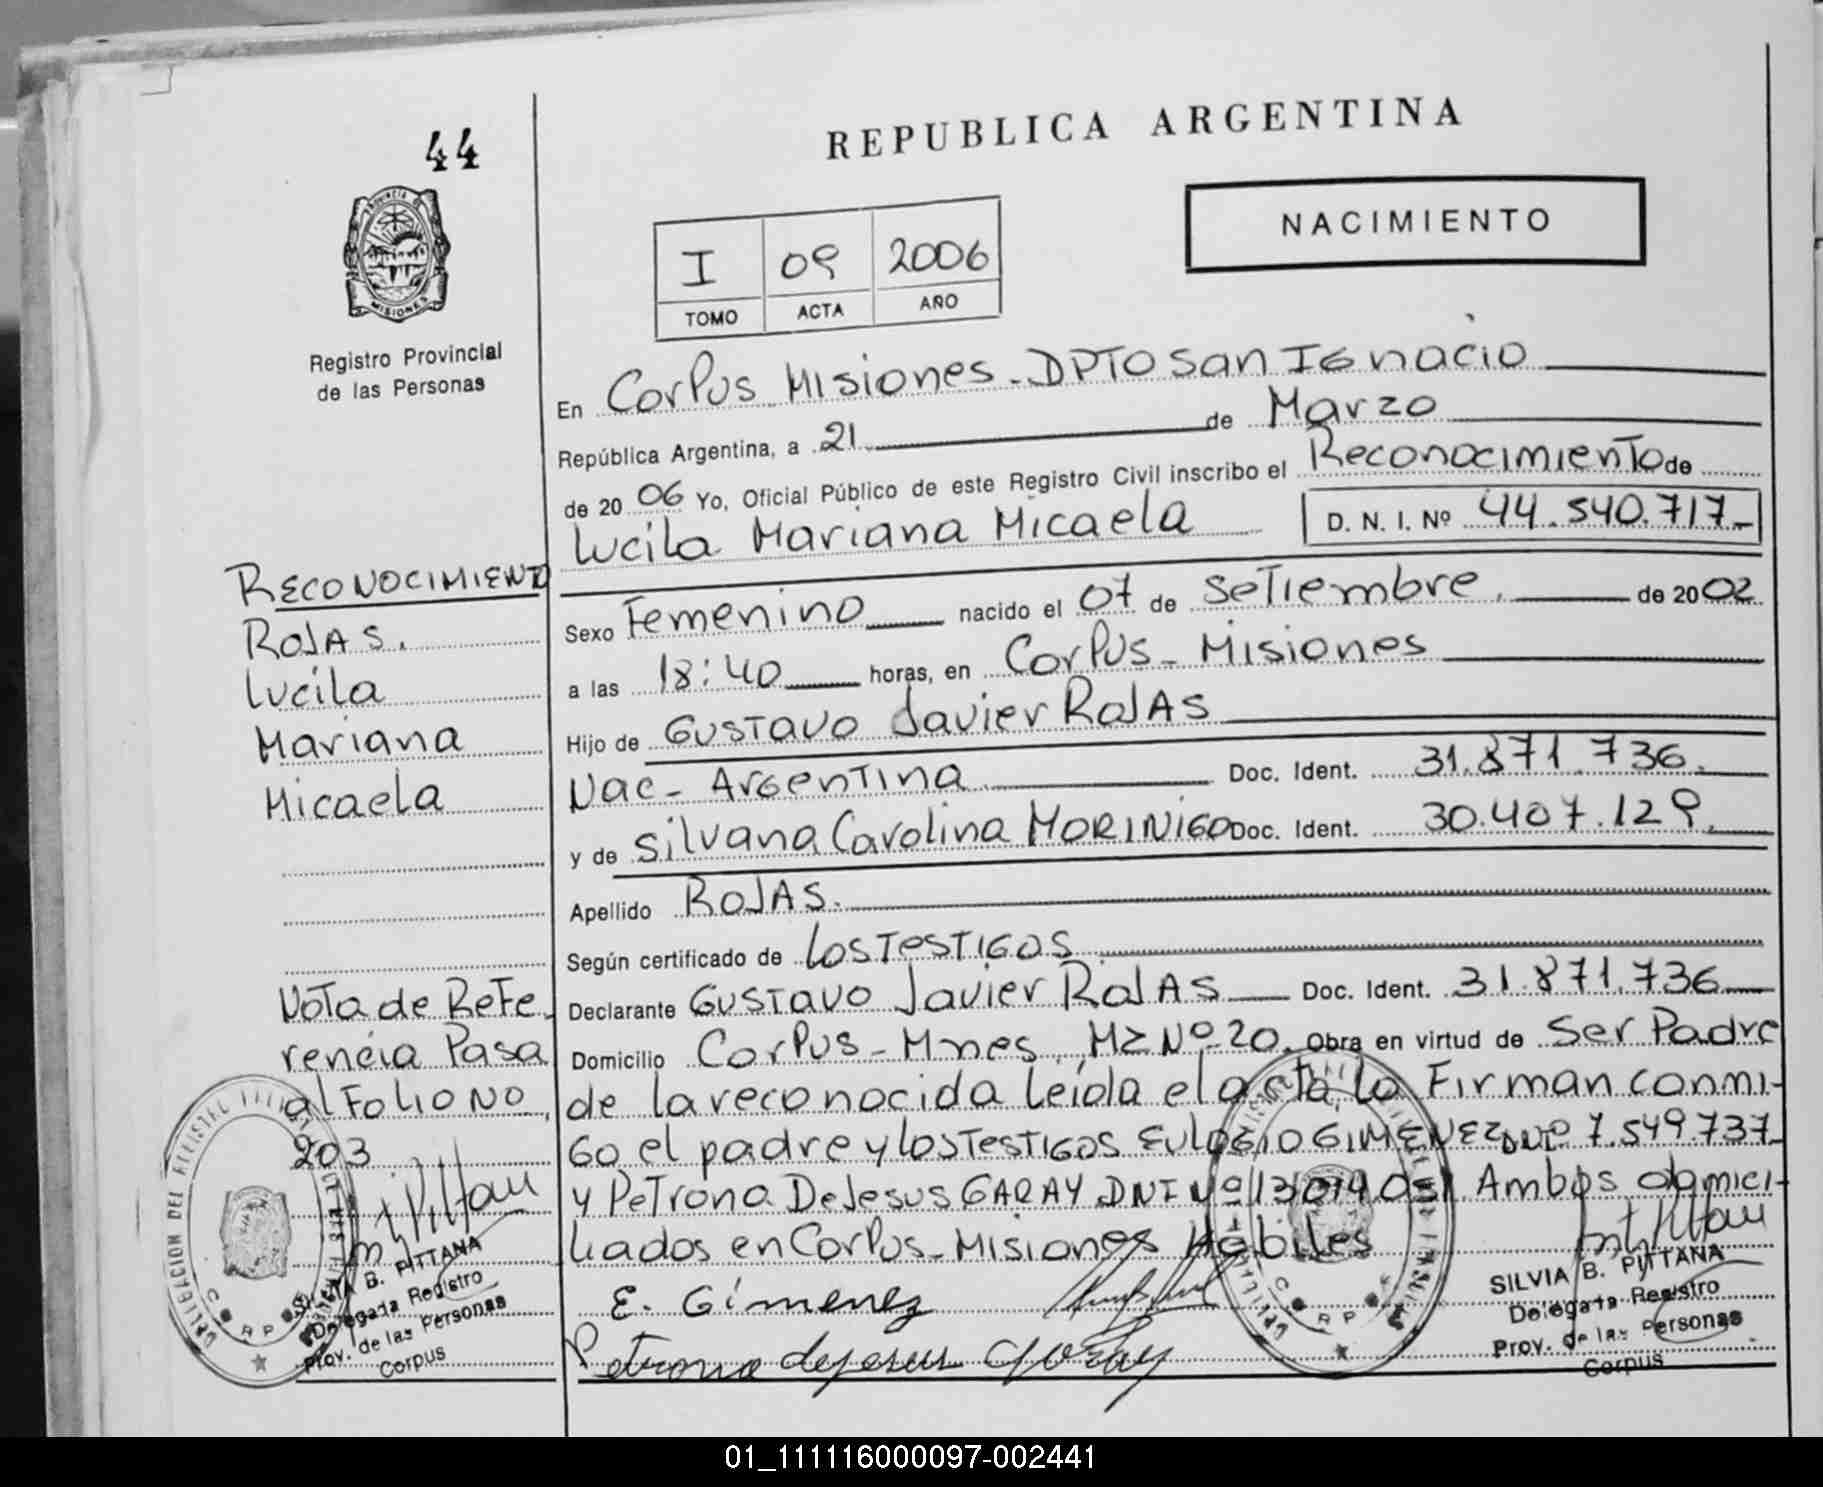 44
REPUBLICA ARGENTINA
NACIMIENTO
I 09 2006
TOMO ACTA AÑO
PROVINCIA DE MISIONES
Registro Provincial
de las Personas
En Corpus Misiones - DPTO San Ignacio
República Argentina, a 21 de Marzo
de 2006 Yo, Oficial Público de este Registro Civil inscribo el Reconocimiento de
Lucila Mariana Micaela D. N. I. Nº 44.540.717-
Sexo Femenino nacido el 07 de Setiembre. de 2002
a las 18:40 horas, en Corpus - Misiones
Hijo de Gustavo Javier ROJAS
Nac - Argentina Doc. Ident. 31.871.736.
y de Silvana Carolina MORINIGO Doc. Ident. 30.407.129.
Apellido ROJAS.
Según certificado de los Testigos
Declarante Gustavo Javier ROJAS Doc. Ident. 31.871.736
Domicilio Corpus - Mnes, Mz Nº 20. Obra en virtud de Ser Padre
de la reconocida Leída el acta, la Firman conmi-
go el padre y los Testigos EULOGIO GIMENEZ DNI Nº 7.549.737
y Petrona De Jesus GARAY DNI Nº Ambos domici-
liados en Corpus - Misiones Hábiles
E. Gimenez
Petrona de jesus Garay
SILVIA B. PITTANA
Delegada Registro
Prov. de las Personas
Corpus
RECONOCIMIENTO
ROJAS.
Lucila
Mariana
Micaela
Nota de Refe-
rencia Pasa
al Folio Nº
203
SILVIA B. PITTANA
Delegada Registro
Prov. de las Personas
Corpus
01_111116000097-002441